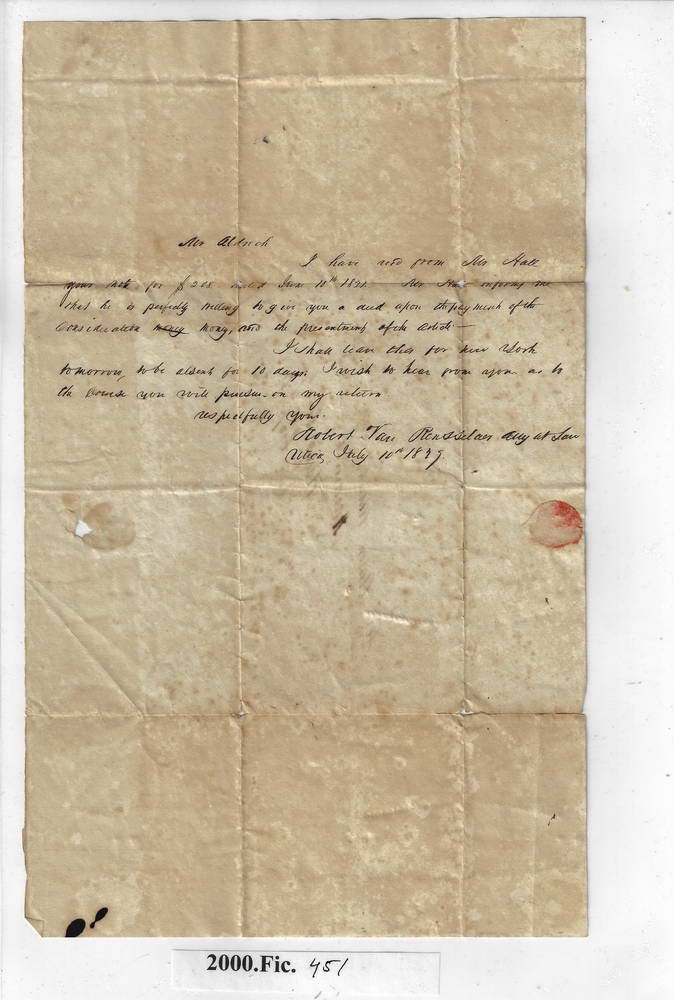 Mr Aldrich
I have recd from Mr Hall
your note for $208 dated June 10th 1821. Mr Hall informs me
that he is perfectly willing to give you a deed upon the payment of the
Consideration money money, and the presentment of the
I shall leave this for New York
tomorrow, to be absent for 10 days. I wish to hear from you as to
the Course you will pursue on my return
respectfully yours
Robert Van Rensselaer Atty at Law
Utica, July 10th 1829.
2000.Fic. 451